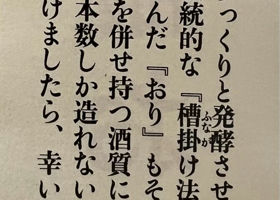 っくりと発酵させ
統的な『槽掛け法
んだ『おり』もそ
を併せ持つ酒質に
本数しか造れない
けましたら、幸い